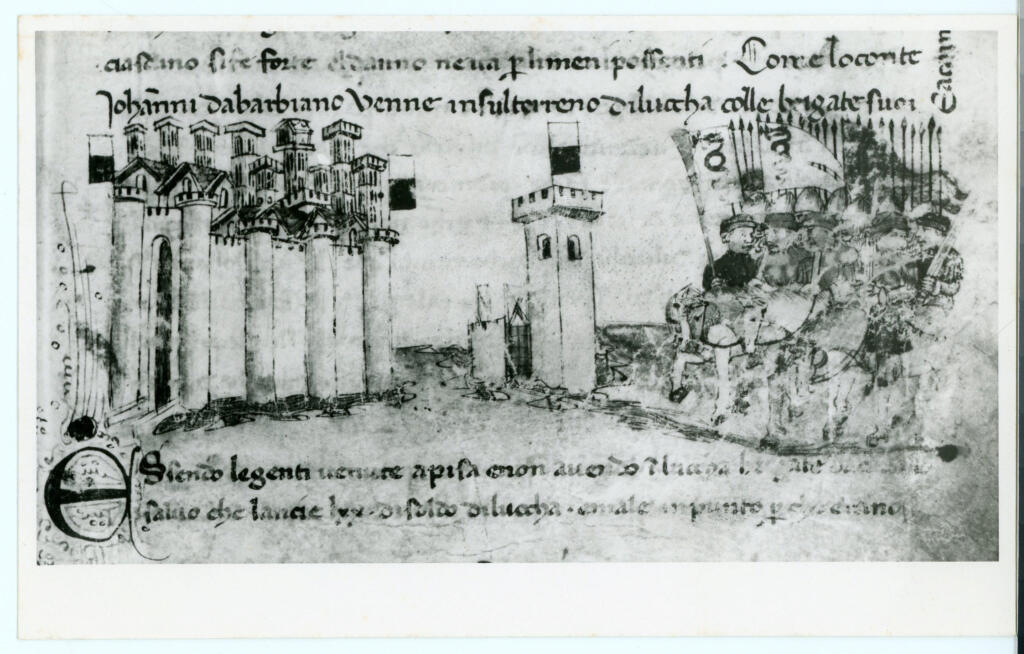 ciascuno si fe forte el danno ne va p li men possenti Come lo conte
Johanni da barbiano venne in sul terreno di luccha colle brigate suoi
Essendo le genti venute a pisa & non avendo luccha brigate
salvo che lancie lxx di soldo di luccha & male in punto p che erano